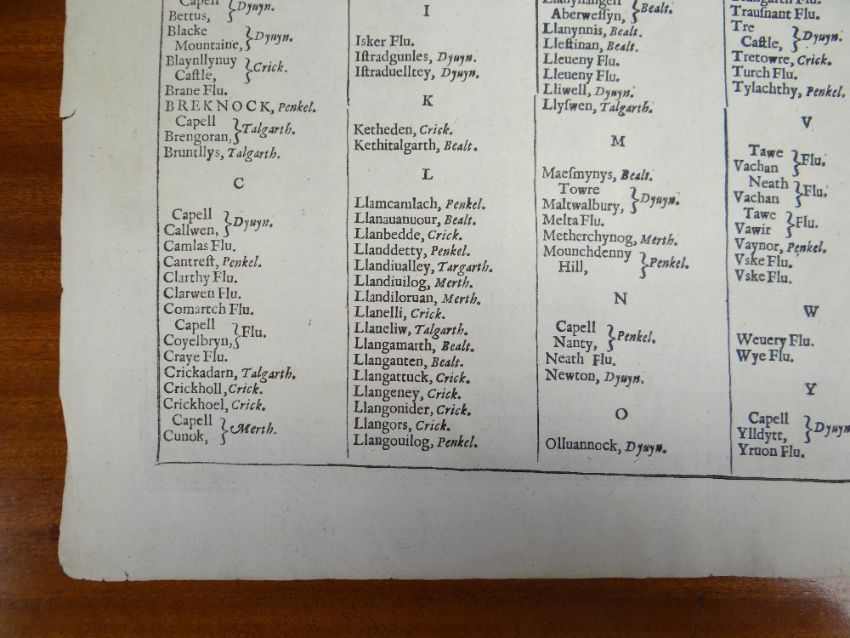 Capell
Bettus, } Dyuyn.
Blacke
Mountaine, } Dyuyn.
Blaynllynuy
Caſtle, } Crick.
Brane Flu.
BREKNOCK, Penkel.
Capell
Brengoran, } Talgarth.
Bruntllys, Talgarth.
C
Capell
Callwen, } Dyuyn.
Camlas Flu.
Cantreſt, Penkel.
Clarthy Flu.
Clarwen Flu.
Comartch Flu.
Capell
Coyelbryn, } Flu.
Craye Flu.
Crickadarn, Talgarth.
Crickholl, Crick.
Crickhoel, Crick.
Capell
Cunok, } Merth.
I
Isker Flu.
Iſtradgunles, Dyuyn.
Iſtraduelltey, Dyuyn.
K
Ketheden, Crick.
Kethitalgarth, Bealt.
L
Llamcamlach, Penkel.
Llanauanuour, Bealt.
Llanbedde, Crick.
Llanddetty, Penkel.
Llandiualley, Targarth.
Llandiuilog, Merth.
Llandiloruan, Merth.
Llanelli, Crick.
Llaneliw, Talgarth.
Llangamarth, Bealt.
Llanganten, Bealt.
Llangattuck, Crick.
Llangeney, Crick.
Llangonider, Crick.
Llangors, Crick.
Llangouilog, Penkel.
Aberweſſyn, } Bealt.
Llanynnis, Bealt.
Lleſtinan, Bealt.
Lleueny Flu.
Lleueny Flu.
Lliwell, Dyuyn.
Llyſwen, Talgarth.
M
Maeſmynys, Bealt.
Towre
Maltwalbury, } Dyuyn.
Melta Flu.
Metherchynog, Merth.
Mounchdenny
Hill, } Penkel.
N
Capell
Nanty, } Penkel.
Neath Flu.
Newton, Dyuyn.
O
Olluannock, Dyuyn.
Trauſnant Flu.
Tre
Caſtle, } Dyuyn.
Tretowre, Crick.
Turch Flu.
Tylachthy, Penkel.
V
Tawe
Vachan } Flu.
Neath
Vachan } Flu.
Tawe
Vawir } Flu.
Vaynor, Penkel.
Vske Flu.
Vske Flu.
W
Weuery Flu.
Wye Flu.
Y
Capell
Ylldytt, } Dyuyn
Yruon Flu.